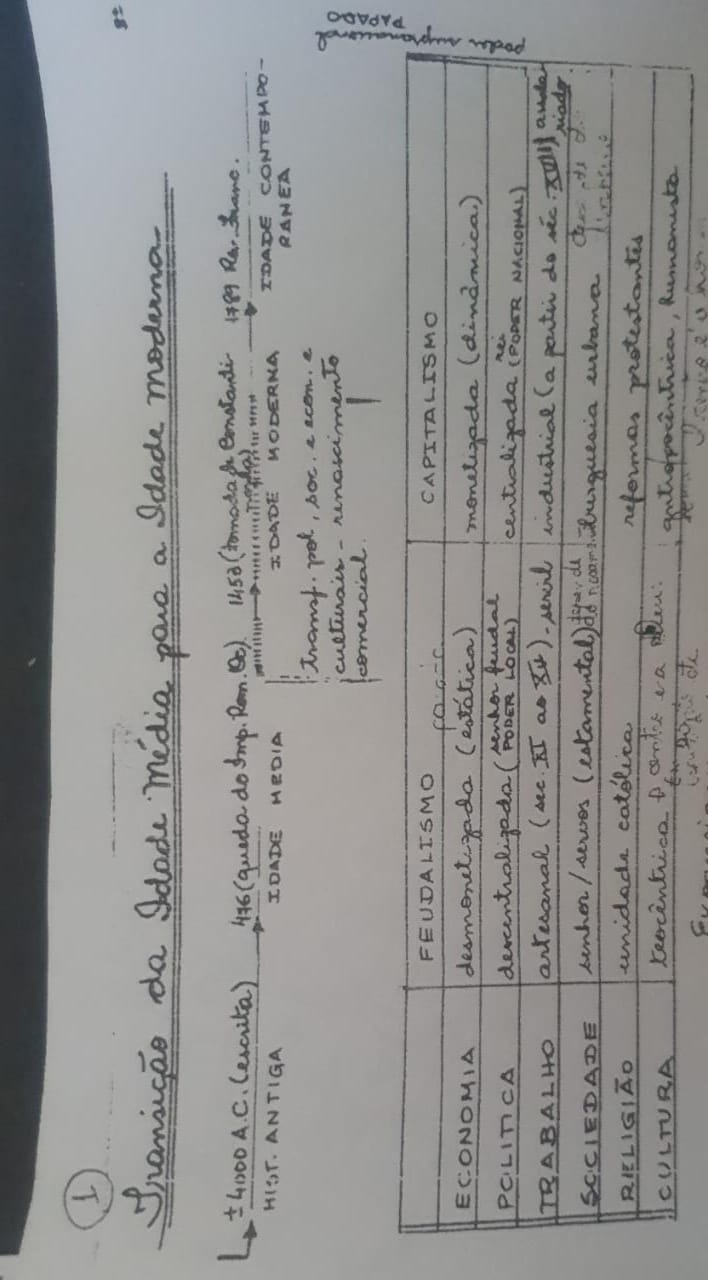 1
8ª
Transição da Idade Média para a Idade moderna
± 4000 A.C. (escrita) 476 (queda do Imp. Rom. Oc.) 1453 (tomada de Constanti 1789 Rev. Franc.
nopla)
HIST. ANTIGA IDADE MEDIA IDADE MODERNA IDADE CONTEMPO-
RANEA
transf. pol, soc. e econ. e
culturais - renascimento
comercial.
poder supranacional
PAPADO
FEUDALISMO CAPITALISMO
ECONOMIA desmonetizada (estática) monetizada (dinâmica)
POLITICA descentralizada (senhor feudal PODER LOCAL) centralizada rei (PODER NACIONAL)
TRABALHO artesanal (sec. XI ao XV) - servil industrial (a partir do séc. XVIII) assala
riado
SOCIEDADE senhor/servos (estamental) burguesia urbana
RELIGIÃO unidade católica reformas protestantes
CULTURA teocêntrica antropocêntrica, humanista